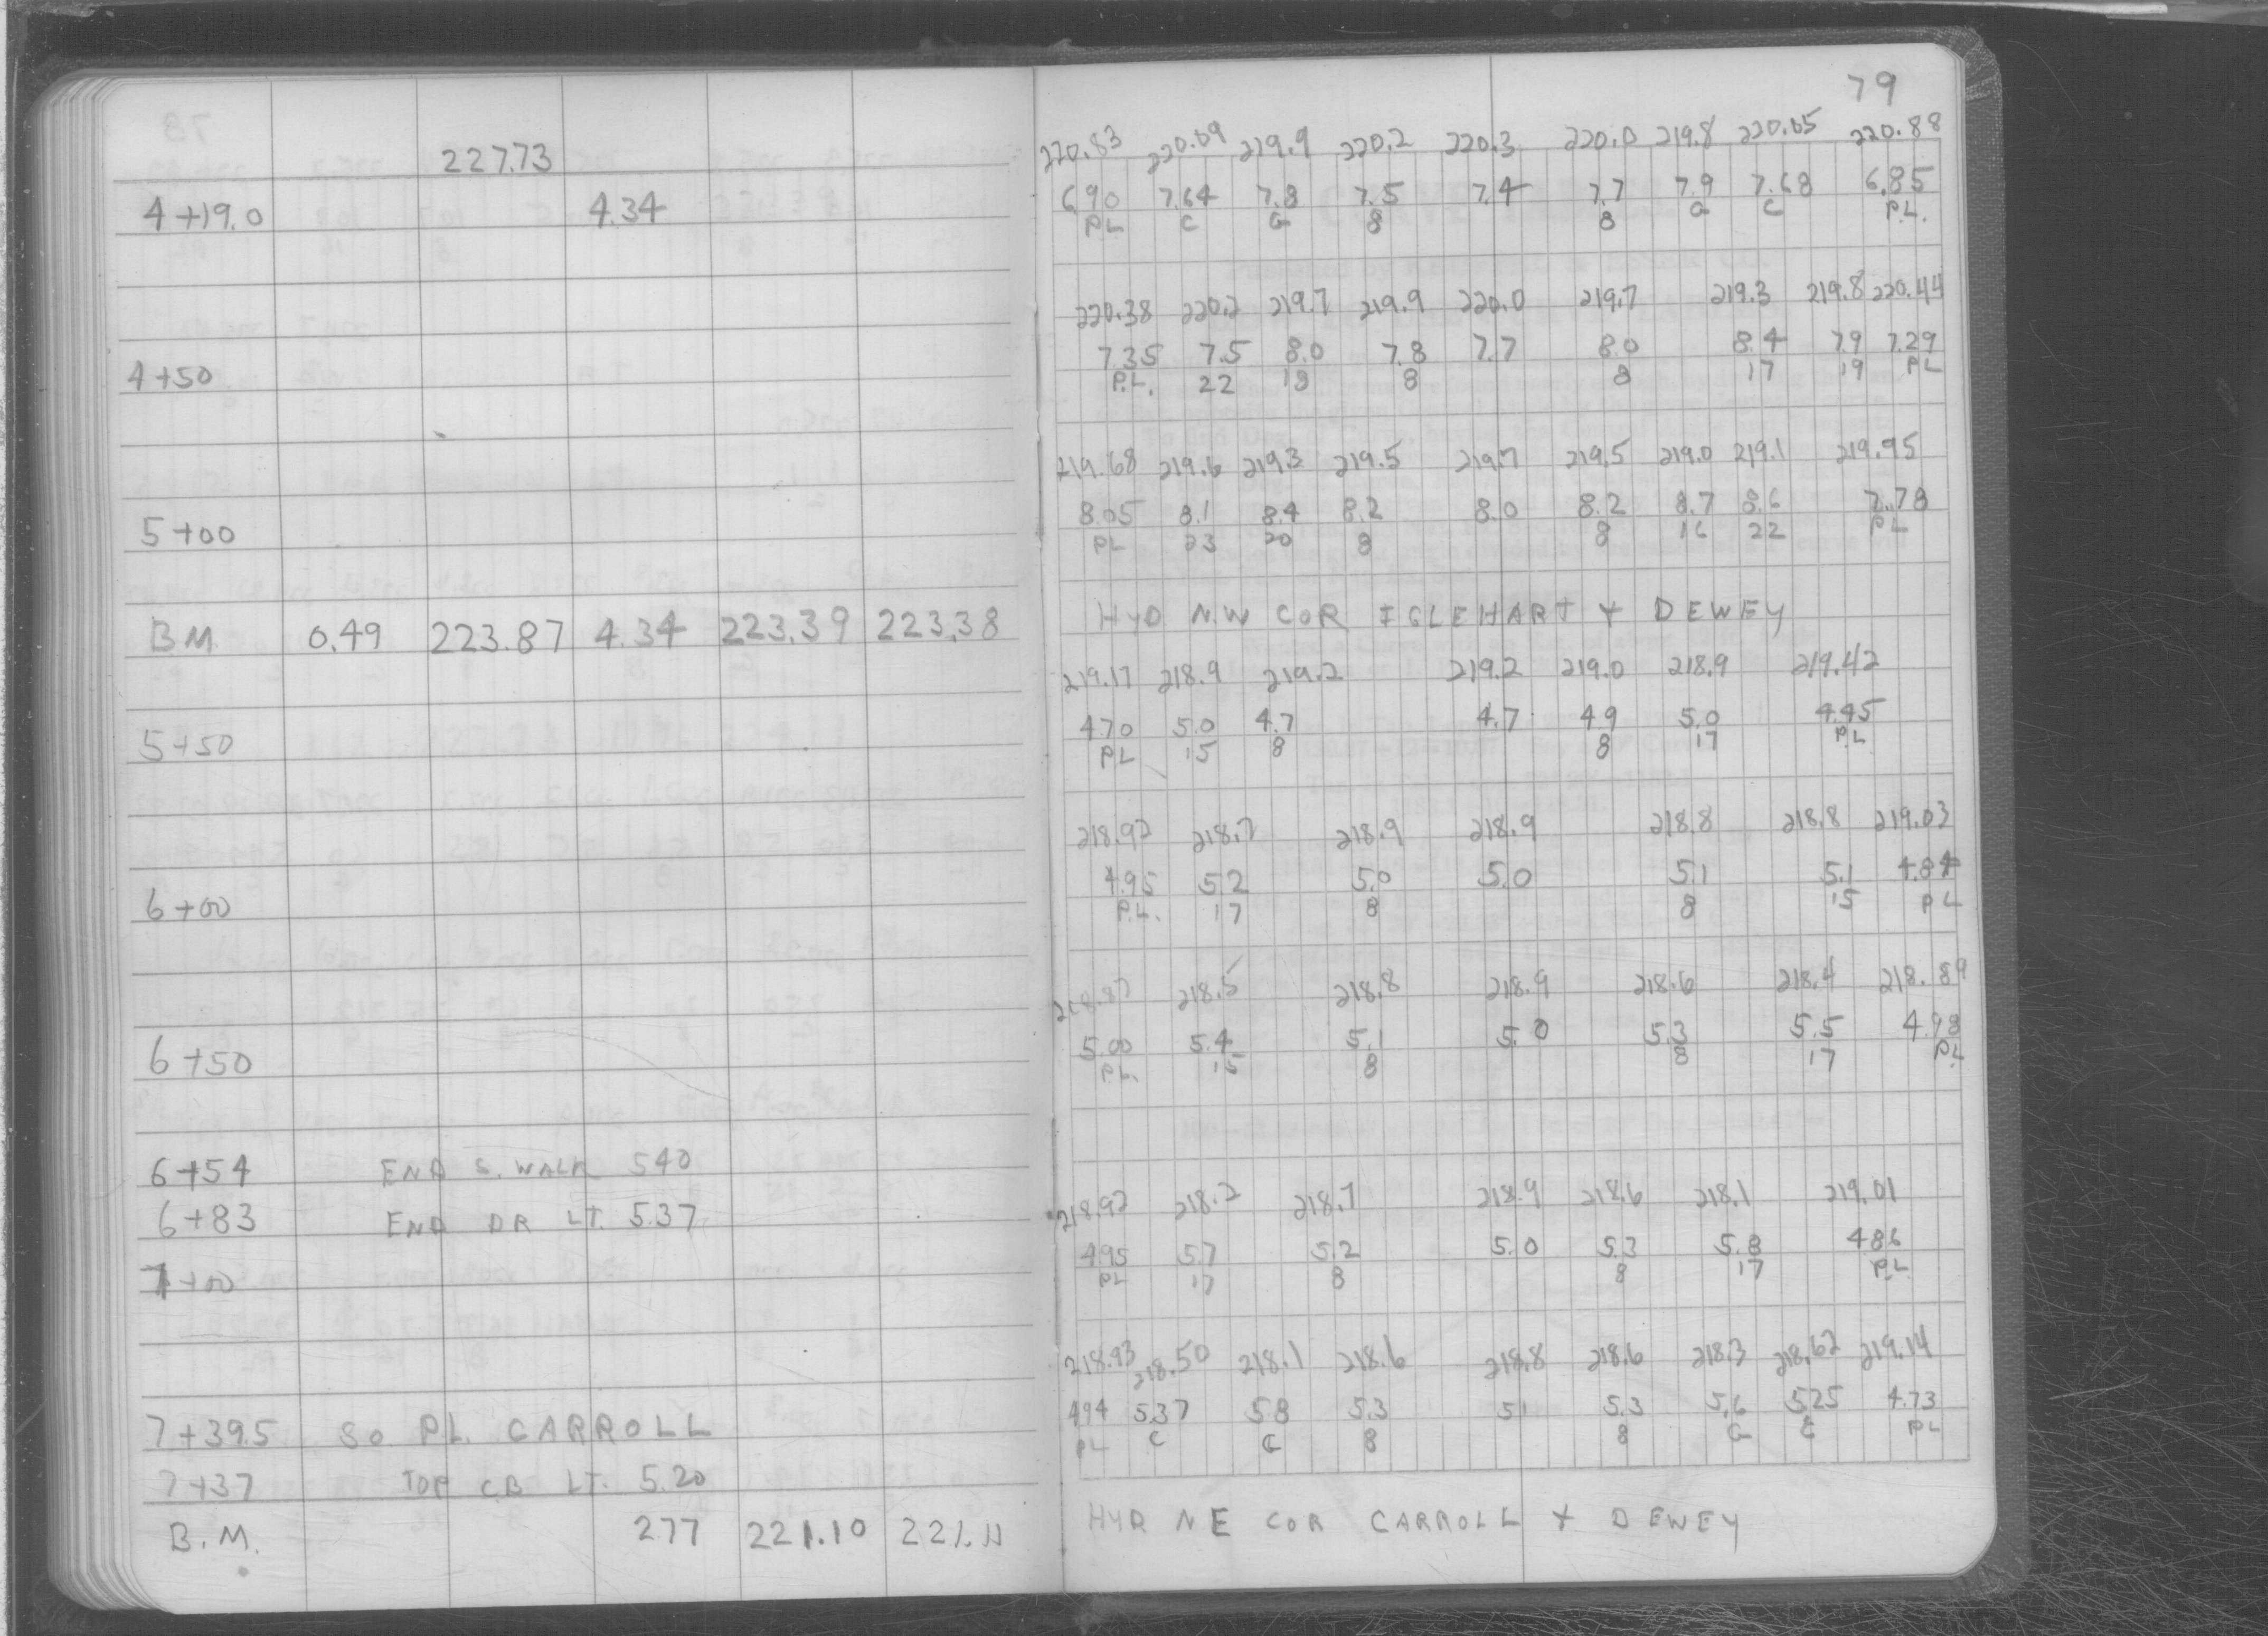 227.73
4+19.0 4.34
4+50
5+00
B.M. 0.49 223.87 4.34 223.39 223.38
5+50
6+00
6+50
6+54 END S. WALK 5.40
6+83 END DR LT. 5.37
7+00
7+39.5 SO PL. CARROLL
7+37 TOP CB LT. 5.20
B.M. 2.77 221.10 221.11
79
220.83 220.09 219.9 220.2 220.3 220.0 219.8 220.05 220.88
6.90 7.64 7.8 7.5 7.4 7.7 7.9 7.68 6.85
PL C G 8 8 G C P.L.
220.38 220.2 219.7 219.9 220.0 219.7 219.3 219.8 220.44
7.35 7.5 8.0 7.8 7.7 8.0 8.4 7.9 7.29
P.L. 22 18 8 8 17 19 PL
219.68 219.6 219.3 219.5 219.7 219.5 219.0 219.1 219.95
8.05 8.1 8.4 8.2 8.0 8.2 8.7 8.6 7.78
PL 23 20 8 8 16 22 PL
HYD N.W COR IGLEHART + DEWEY
219.17 218.9 219.2 219.2 219.0 218.9 219.42
4.70 5.0 4.7 4.7 4.9 5.0 4.45
PL 15 8 8 17 P.L.
218.92 218.7 218.9 218.9 218.8 218.8 219.03
4.95 5.2 5.0 5.0 5.1 5.1 4.84
P.L. 17 8 8 15 PL
218.87 218.5 218.8 218.9 218.6 218.4 218.89
5.00 5.4 5.1 5.0 5.3 5.5 4.98
P.L. 15 8 8 17 P.L
218.92 218.2 218.7 218.9 218.6 218.1 219.01
4.95 5.7 5.2 5.0 5.3 5.8 4.86
PL 17 8 8 17 P.L
218.93 218.50 218.1 218.6 218.8 218.6 218.3 218.62 219.14
4.94 5.37 5.8 5.3 5.1 5.3 5.6 5.25 4.73
PL C G 8 8 G C PL
HYD NE COR CARROLL + DEWEY